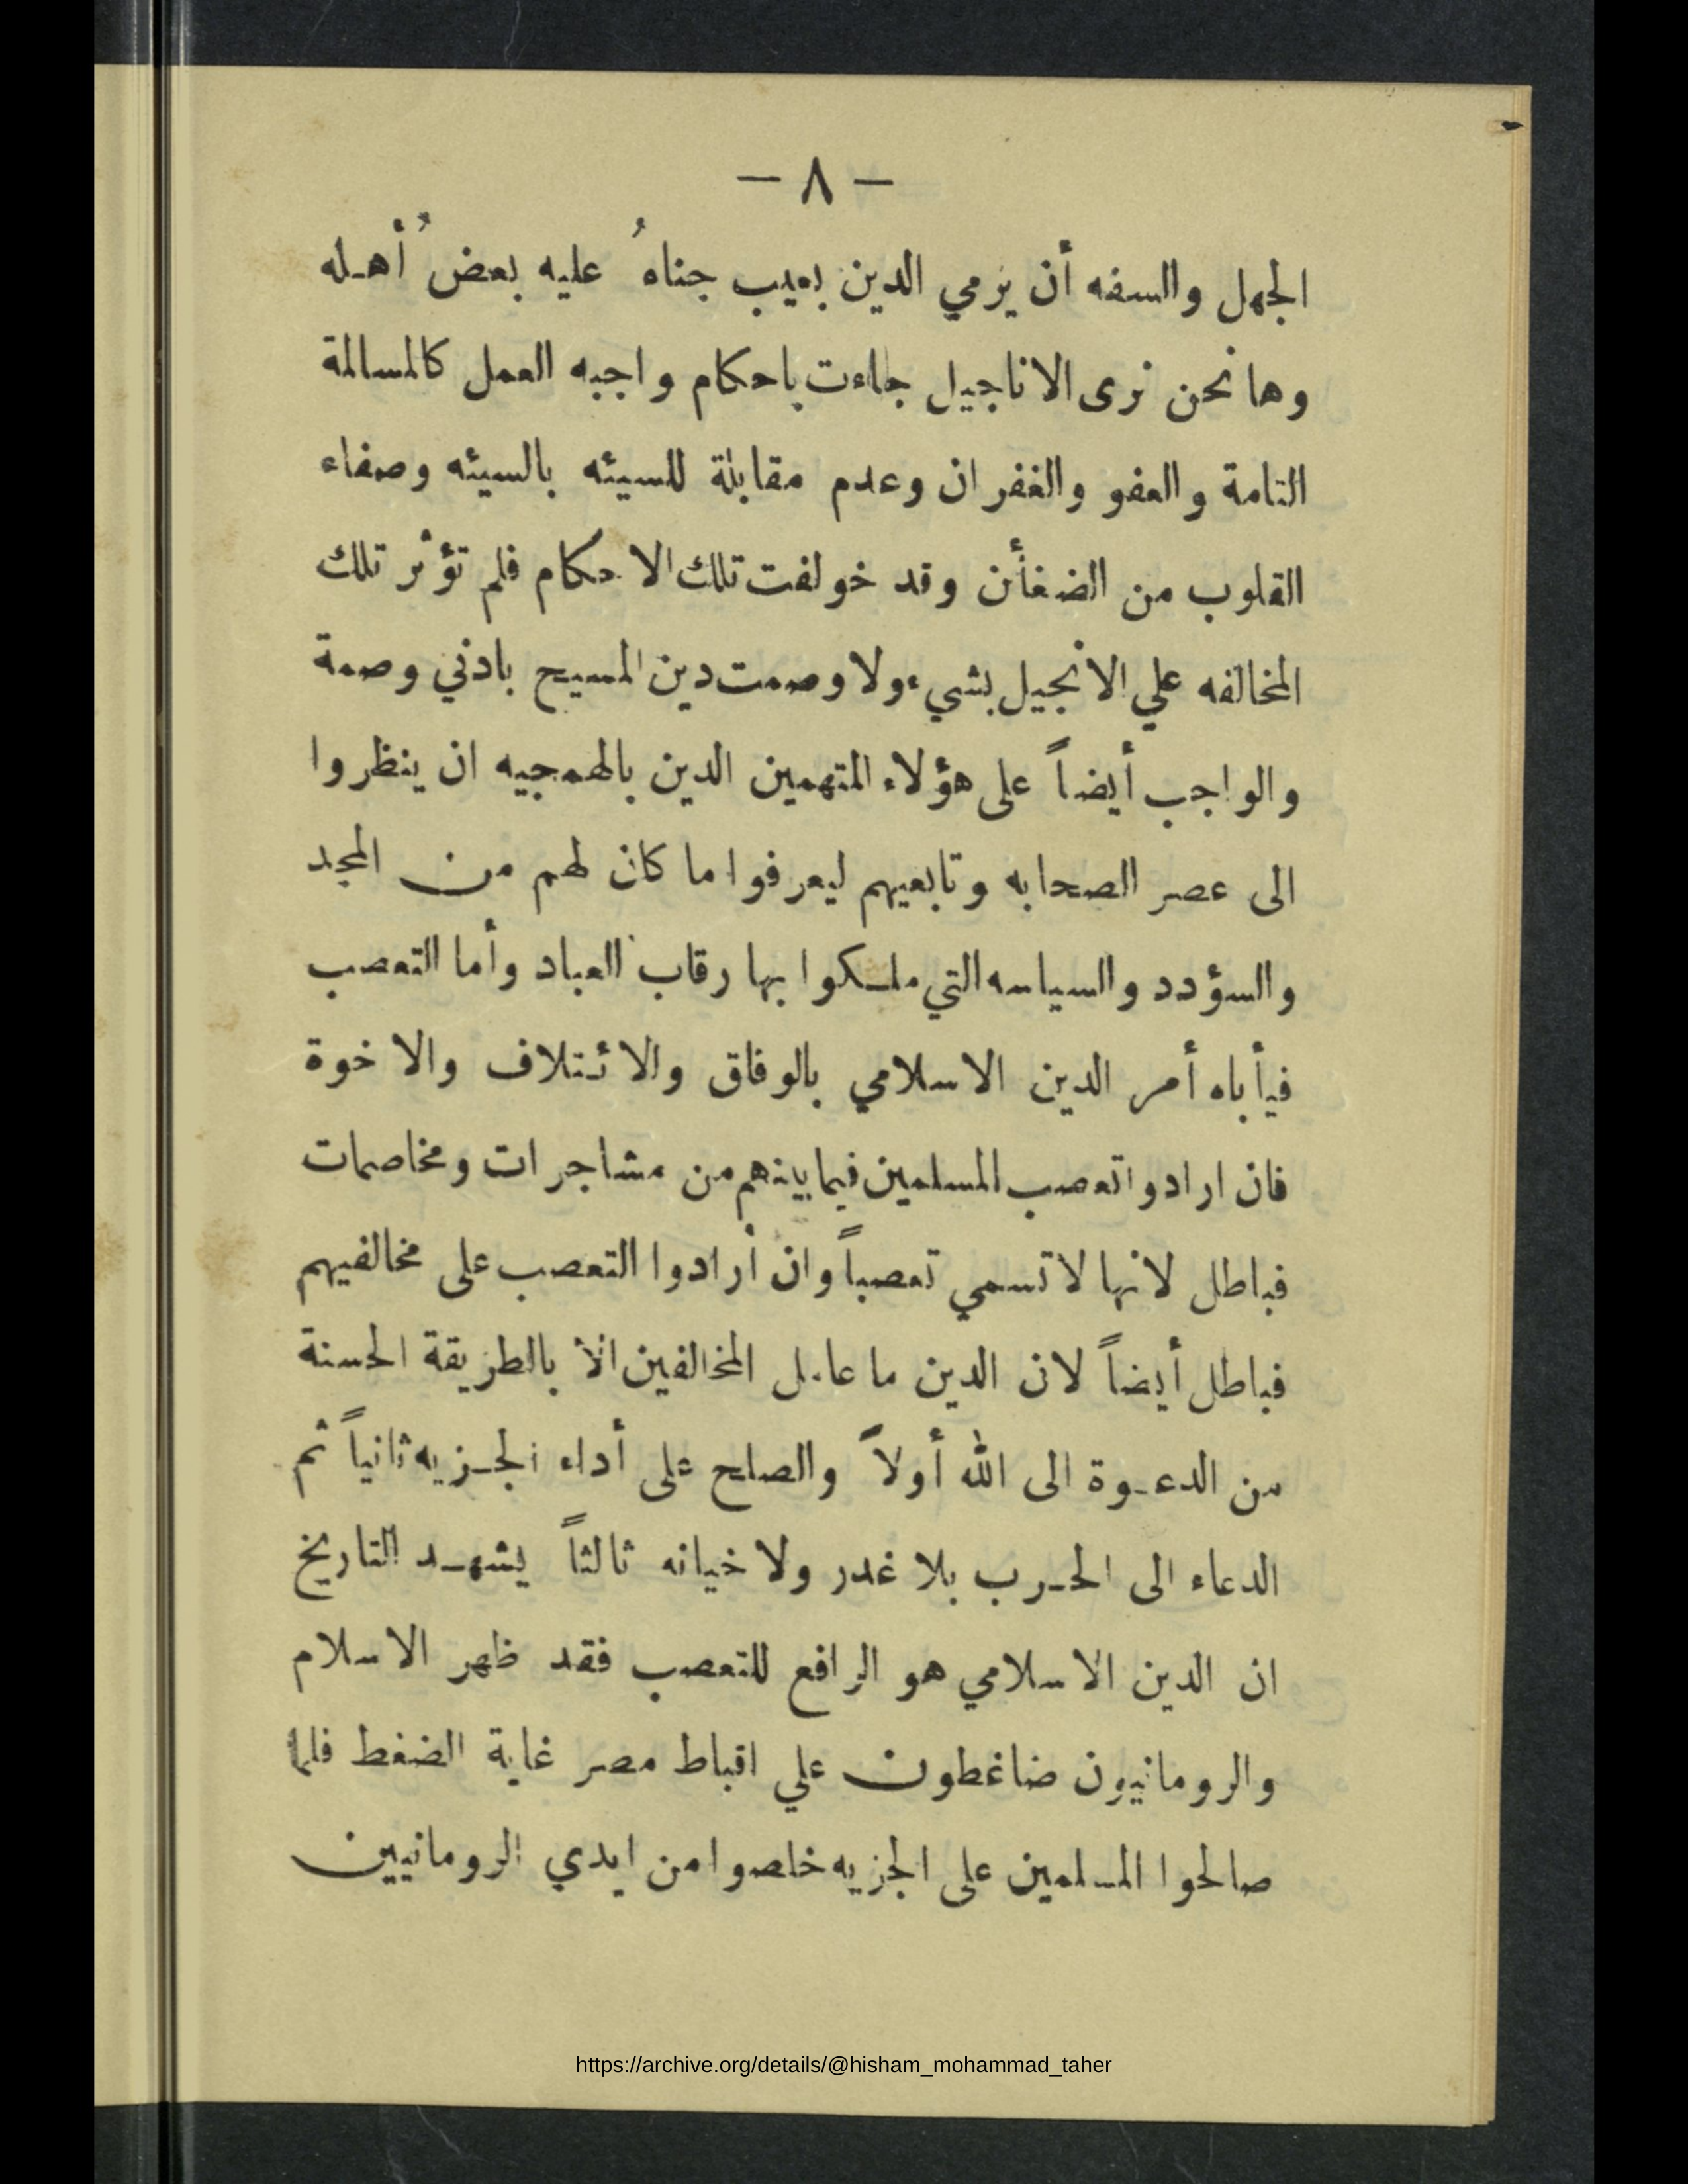 — ٨ —
الجهل والسفه أن يرمي الدين بعيب جناهُ عليه بعضُ أهله
وها نحن نرى الاناجيل جاءت باحكام واجبه العمل كالمسالمة
التامة والعفو والغفران وعدم مقابلة للسيئه بالسيئه وصفاء
القلوب من الضغأن وقد خولفت تلك الاحكام فلم تؤثر تلك
المخالفه علي الانجيل بشيء ولا وصمت دين المسيح بادني وصمة
والواجب أيضاً على هؤلاء المتهمين الدين بالهمجيه ان ينظروا
الى عصر الصحابه وتابعيهم ليعرفوا ما كان لهم من المجد
والسؤدد والسياسه التي ملكوا بها رقاب العباد وأما التعصب
فيأباه أمر الدين الاسلامي بالوفاق والائتلاف والاخوة
فان ارادوا تعصب المسلمين فيما بينهم من مشاجرات ومخاصمات
فباطل لانها لا تسمي تعصباً وان أرادوا التعصب على مخالفيهم
فباطل أيضاً لان الدين ما عامل المخالفين الا بالطريقة الحسنة
من الدعوة الى الله أولاً والصلح على أداء الجزيه ثانياً ثم
الدعاء الى الحرب بلا غدر ولا خيانه ثالثاً يشهد التاريخ
ان الدين الاسلامي هو الرافع للتعصب فقد ظهر الاسلام
والرومانيون ضاغطون علي اقباط مصر غاية الضغط فلما
صالحوا المسلمين على الجزيه خلصوا من ايدي الرومانيين
https://archive.org/details/@hisham_mohammad_taher